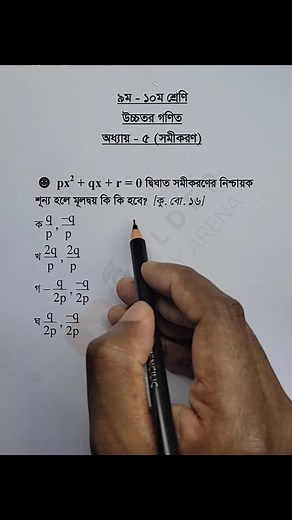 ৯ম - ১০ম শ্রেণি
উচ্চতর গণিত
অধ্যায় - ৫ (সমীকরণ)
☻ px² + qx + r = 0 দ্বিঘাত সমীকরণের নিশ্চায়ক
শূন্য হলে মূলদ্বয় কি কি হবে? [কু. বো. ১৬]
ক q/p, -q/p
খ 2q/p, 2q/p
গ -q/2p, -q/2p
ঘ q/2p, -q/2p
PENCILIC
ARENA